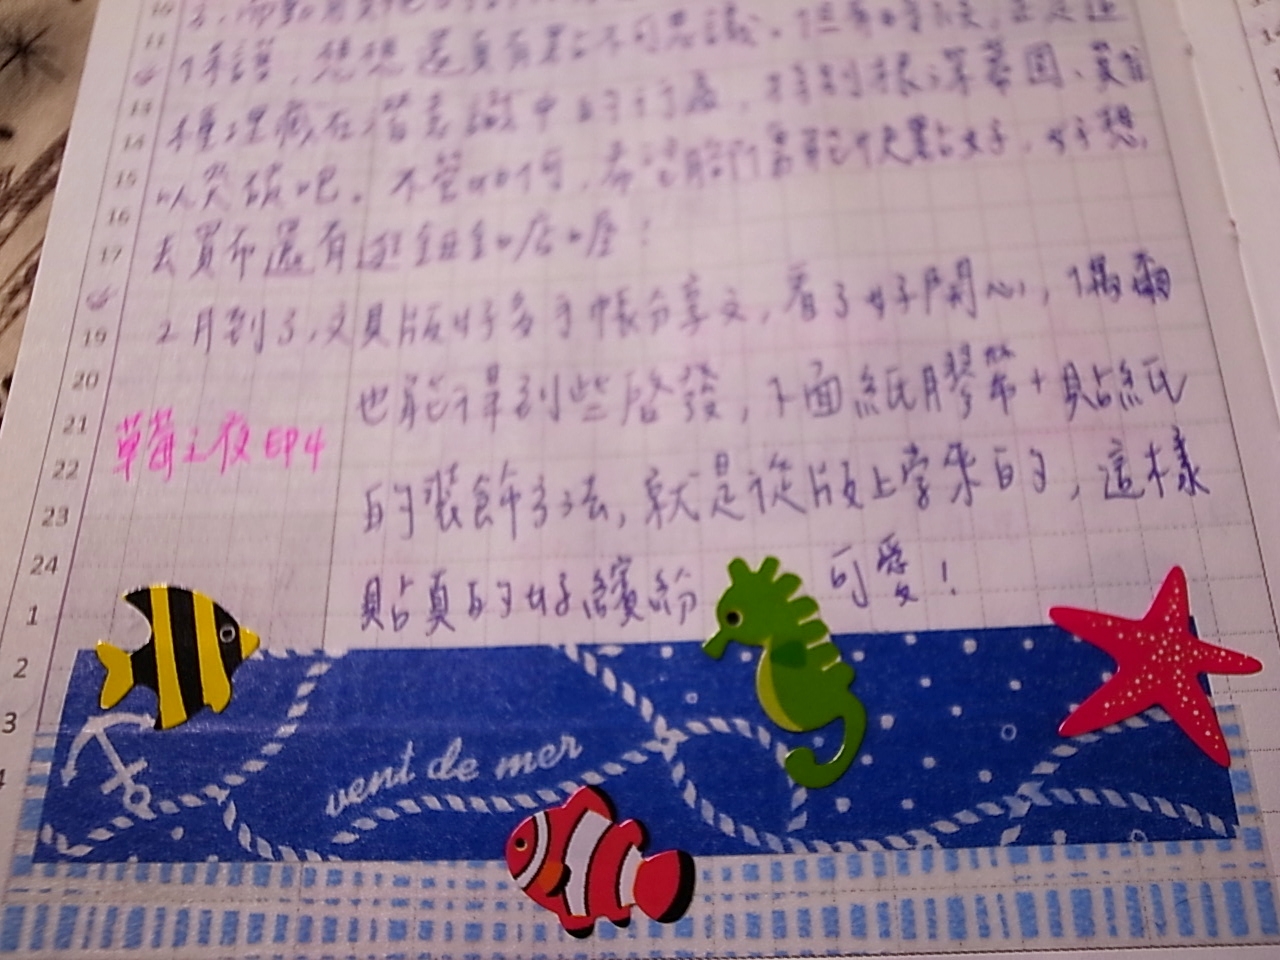 10
11
13
14
15
16
17
19
20
21
22
23
24
1
2
3
4
件事，想想還真有點不可思議。但有時候，
種埋藏在潛意識中的，特別根深蒂固、莫
以突破吧。不管如何，希望能快點好，好想
去買布還有逛組和店喔！
2月到了，文具版好多手帳分享文，看了好開心，偶爾
也能得到些啓發，下面紙膠帶+貼紙
的裝飾方法，就是從版上學來的，這樣
貼真的好繽紛可愛！
草莓之夜 EP4
vent de mer